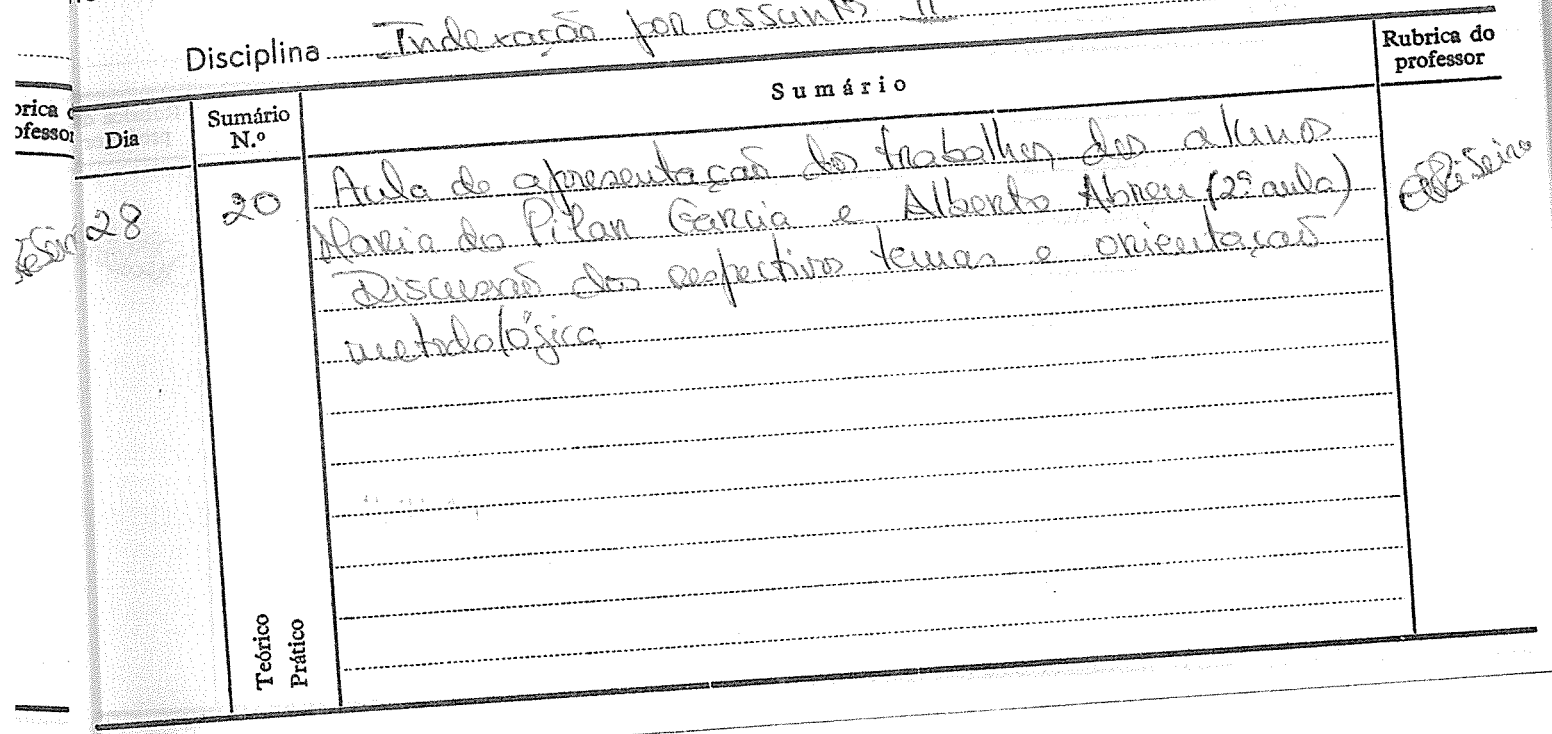 Disciplina Indexação por assunto II
Dia
Sumário N.º
Sumário
Rubrica do professor
28
20
Aula de apresentação dos trabalhos dos alunos
Maria do Pilar Garcia e Alberto Abreu (2ª aula)
Discussão dos respectivos temas e orientação
metodológica
Teórico
Prático